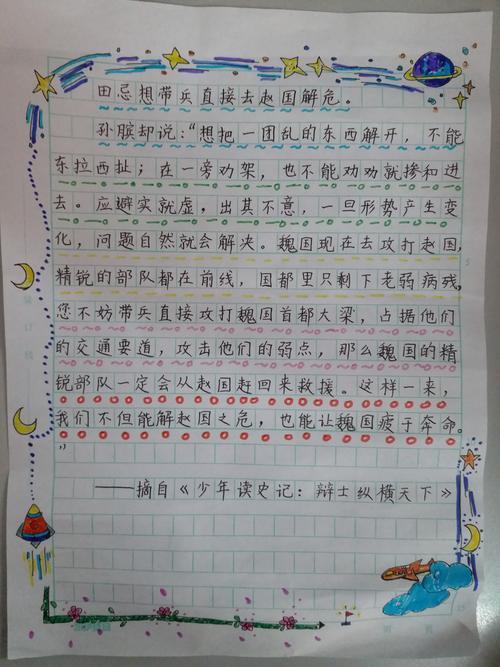 田忌想带兵直接去赵国解危。
孙膑却说:“想把一团乱的东西解开,不能
东拉西扯;在一旁劝架,也不能劝劝就掺和进
去。应避实就虚,出其不意,一旦形势产生变
化,问题自然就会解决。魏国现在去攻打赵国,
精锐的部队都在前线,国都里只剩下老弱病残,
您不妨带兵直接攻打魏国首都大梁,占据他们
的交通要道,攻击他们的弱点,那么魏国的精
锐部队一定会从赵国赶回来救援。这样一来,
我们不但能解赵国之危,也能让魏国疲于奔命。
”
——摘自《少年读史记:辩士纵横天下》